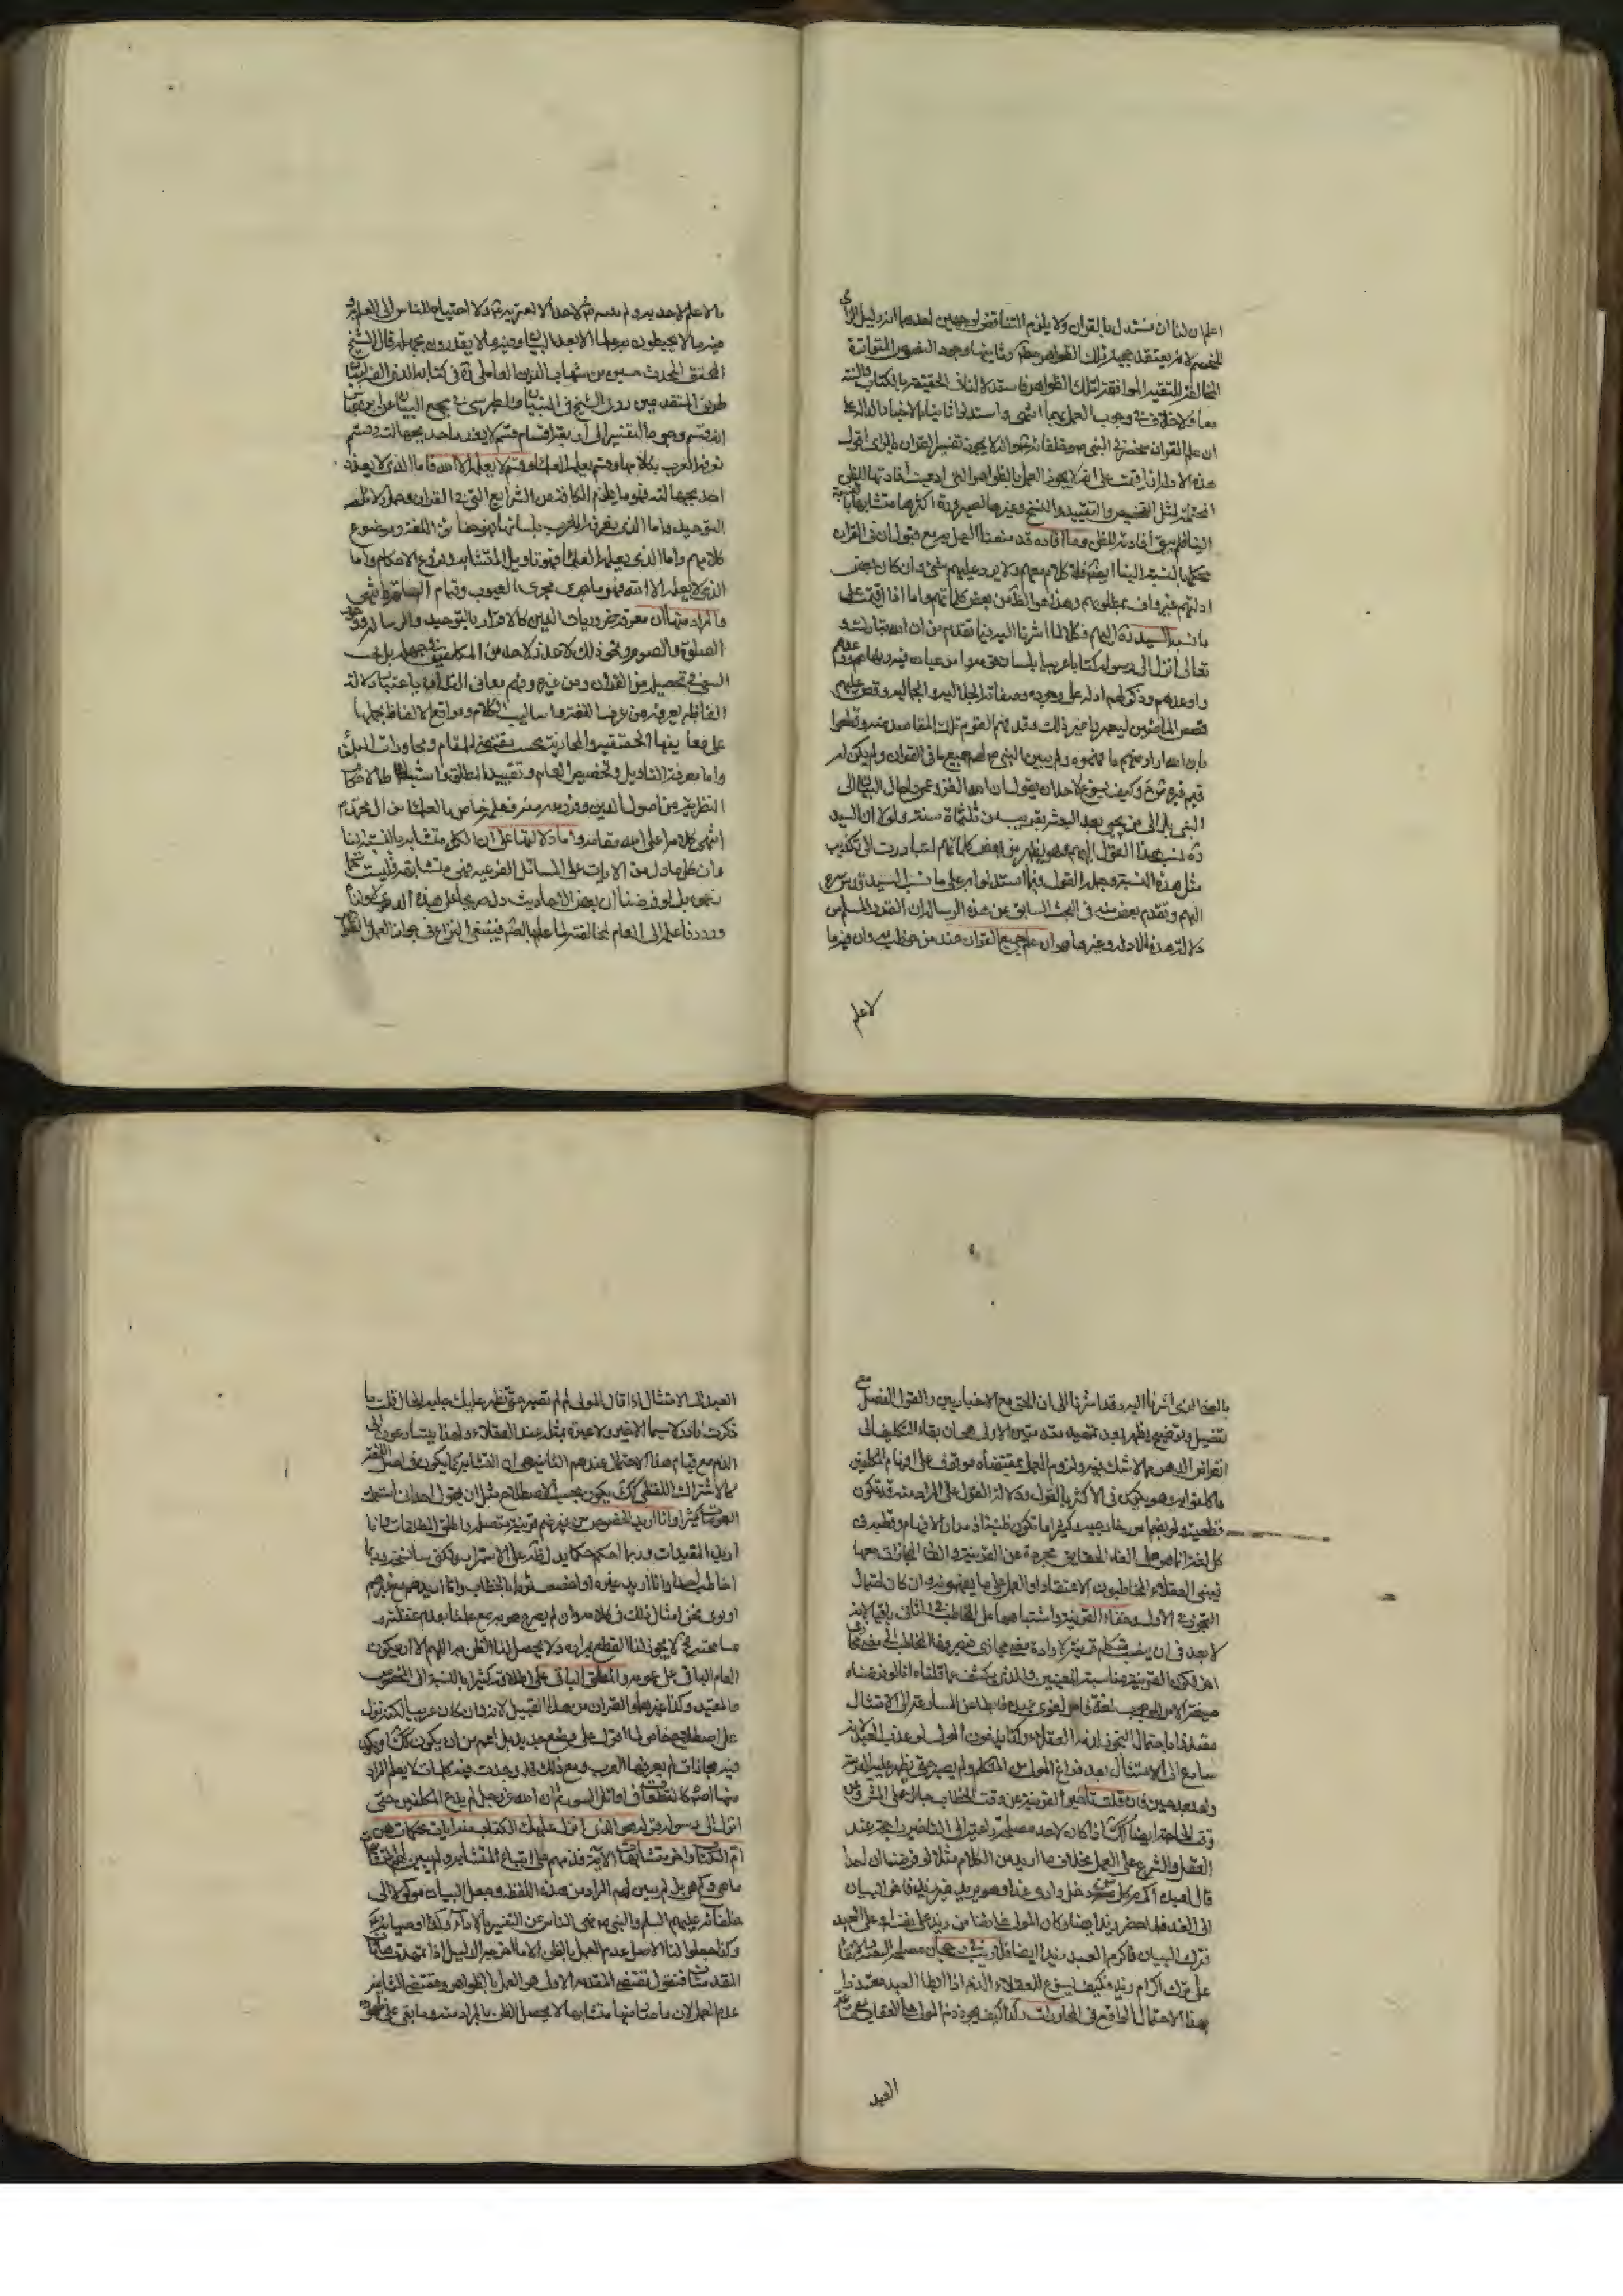 اعلم ان لنا ان نستدل بالقران ولا يلزم التناقض لوجهين احدهما انه دليل الزامي
للخصم لانه يعتقد حجية تلك الظواهر وثانيهما وجود النصوص المتواترة
المخالفة للتقية الموافقة لتلك الظواهر فاستدلالنا في الحقيقة بالكتاب والسنة
معا ولا خلاف في وجوب العمل بهما انتهى واستدلوا ثانيا بالاخبار الدالة على
ان علم القران منحصر في النبي وخلفائه وانه لا يجوز تفسير القران بالراى اقول
هذه الادلة ان اقيمت على انه لا يجوز العمل بالظواهر التى ادعيت افادتها للظن
المحتملة لمثل التخصيص والتقييد والنسخ وغيرها لصيرورة اكثرها متشابها بالنسبة
الينا فلم يبق افادته للظن وما افاده قد منعنا العمل به مع قبول ان في القران
محكما بالنسبة الينا ايضا فلا كلام معهم ولا يرد عليهم شىء وان كان بعض
ادلتهم غير واف بمطلوبهم وهذا هو الظاهر من بعض كلماتهم واما اذا اقيمت على
ما نسبه السيد ره اليهم فكلا لما اشرنا اليه فيما تقدم من ان الله تبارك و
تعالى انزل الى رسوله كتابا عربيا بلسان قومه
واوعدهم وذكر لهم ادلة على وجوده وصفاته الجلالية والجمالية وقص عليهم
قصص الماضين ليعتبروا وغير ذلك وقد فهم القوم تلك المقاصد منه وقطعوا
بان الله اراد منهم ما فهموه ولم يبين النبى لهم جميع ما في القران ولم يكن لهم
فيه شك وكيف يسوغ لاحد ان يقول ان الله الغز وعمى واحال البيان الى
النبى بل الى من يجىء بعد البعثة بقريب من ثلثمائة سنة ولولا ان السيد
ره نسب هذا القول اليهم وهو يظهر من بعض كلماتهم لتبادرت الى تكذيب
مثل هذه النسبة وجملة القول فيما استدلوا به على ما نسب السيد قدس سره
اليهم وتقدم بعض منه في البحث السابق من هذه الرسالة ان القدر المسلم من
دلالة هذه الادلة وغيرها هو ان علم جميع القران عند من خوطب به وان فيه ما
لا علم
لا علم لاحد به
منه ما لا يحيطون به علما الا بعد البيان ومنه ما لا يعذرون بجهله قال الشيخ
المحقق المحدث حسين بن شهاب الدين العاملى ره في كتابه
طريق المتقدمين روى الشيخ في التبيان والطبرسى في مجمع البيان عن ابن عباس
انه قسم وجوه التفسير الى اربعة اقسام قسم لا يعذر احد بجهالته وقسم
تعرفه العرب بكلامها وقسم يعلمه العلماء وقسم لا يعلمه الا الله فاما الذى لا يعذر
احد بجهالته فهو ما يلزم الكافة من الشرايع التى في القران وجمل دلائل
التوحيد واما الذى يعرفه العرب بلسانها فهو حقائق اللغة وموضوع
كلامهم واما الذى يعلمه العلماء فهو تاويل المتشابه وفروع الاحكام واما
الذى لا يعلمه الا الله فهو ما يجرى مجرى الغيوب وقيام الساعة انتهى
والمراد منها ان معرفة ضروريات الدين كالاقرار بالتوحيد والرسالة ووجوب
الصلوة والصوم ونحو ذلك لا عذر لاحد من المكلفين في جهله بل يجب
السعى في تحصيله من القران ومن غيره وفهم معانى القران باعتبار دلالة
الفاظه يعرفه من عرف اللغة واساليب الكلام ومواقع الالفاظ بحملها
على معانيها الحقيقية والمجازية بحسب مقتضى المقام ومحاورات
واما معرفة التاويل وتخصيص العام وتقييد المطلق واستنباط الاحكام
النظرية من اصول الدين وفروعه فعلم خاص بالعلماء من ال محمد
انتهى كلامه اعلى الله مقامه واما دلالتها على ان الكل متشابه بالنسبة لنا
وان كل ما دل من الايات على المسائل الفرعية فهى متشابهة فليست
بنحو بل لو فرضنا ان بعض الاحاديث دل صريحا على هذه الدعوى
ورددنا علمه الى العالم لمخالفته لما علم بالضرورة فينبغى النزاع في جواز العمل بالظواهر
بالمعنى الذى اشرنا اليه وقد اشرنا الى ان الحق مع الاخباريين والقول الفصل
تفصيل وتوضيح يظهر بعد تمهيد مقدمتين الاولى هى ان بقاء التكليف الى
انقراض الدهر مما لا شك فيه ولزوم العمل بمقتضاه موقوف على افهام المكلفين
ما كلفوا به وهو يكون في الاكثر بالقول ودلالة القول على المراد منه قد تكون
قطعية ولو بضم امر خارجى وكثيرا ما تكون ظنية اذ مدار الافهام والفهم في
كل لغة انما هو على القاء الحقايق مجردة عن القرينة والقاء المجازات معها
فيبنى العقلاء المخاطبون الاعتقاد او العمل على ما يفهمونه وان كان احتمال
التجوز في الاول وخفاء القرينة واشتباهها على المخاطب في الثانى باقيا لانه
لا بعد في ان ينصب متكلم قرينة لارادة معنى مجازى فيصرفها المخاطب الى معنى مجازى
اخر لكون القرينة مناسبة للمعنيين والذى يكشف عما قلناه انا لو فرضنا
صيغة الامر للوجوب لغة فامر المولى عبده فابطا عن المسارعة الى الامتثال
معتذرا باحتمال التجوز لذمه العقلاء
سارع الى الامتثال بعد فراغ المولى من التكلم ولم يصبر حتى يظهر عليه القرينة
ولم يعد حين فان قلت تاخير القرينة عن وقت الخطاب جائز على المشهور وعن
وقت الحاجة ايضا كك اذا كان لاحد مصلحة راعية الى التاخير راجحة عند
العقل والشرع على العمل بخلاف ما اريد من الكلام مثلا لو فرضنا ان احدا
قال لعبده اكرم كل من دخل دارى غدا وهو يريد غير زيد فاخر البيان
الى الغد فلما حضر زيد ايضا وكان المولى خائفا من زيد على نفسه او على العبد
فترك البيان فاكرم العبد زيدا ايضا فلا ريب في رجحان مصلحة
على ترك اكرام زيد فكيف يسوغ للعقلاء الذم اذا ابطا العبد معتذرا
بهذا الاحتمال الواقع في المحاورات وكذا كيف يجوز ذم المولى
العبد
العبد الى الامتثال اذا قال المولى لم لم تصبر حتى تظهر عليك جلية الحال قلت ما
ذكرت نادر لا سيما الاخير ولا عبرة بمثله عند العقلاء ولهذا يتسارعون الى
الذم مع قيام هذا الاحتمال عندهم الثانية هى ان المتشابه كما يكون في اصل اللغة
كالاشتراك اللفظى كك يكون بحسب الاصطلاح مثل ان يقول احد انا استعمل
العمومات كثيرا وانا اريد الخصوص من غير ضم قرينة متصلة واطلق المطلقات وانا
اريد المقيدات وربما احكم حكما يدل ظاهره على الاستمرار ولكنى سانسخه وربما
اخاطب احدا وانا اريد غيره او اخص قوما بالخطاب وانا اريدهم مع غيرهم
او نرى نحن امثال ذلك في كلامه وان لم يصرح هو به مع علمنا بعدم غفلته و
مسامحته فح لا يجوز لنا القطع بمراده ولا يحصل لنا الظن به اللهم الا ان يكون
العام الباقى على عمومه والمطلق الباقى على اطلاقه كثيرا بالنسبة الى المخصوص
والمقيد وكذا غيرهما والقران من هذا القبيل لانه وان كان عربيا لكنه نزل
على اصطلاح خاص لا اقول على وضع جديد بل اعم من ان يكون كك او يكون
فيه مجازات لم يعرفها العرب ومع ذلك قد وجدت فيه كلمات لا يعلم المراد
منها اصلا كالمقطعات في اوائل السور ثم ان الله عز وجل لم يدع المكلفين حتى
انزل الى رسوله قوله هو الذى انزل عليك الكتاب منه ايات محكمات هن
ام الكتاب واخر متشابهات الاية فذمهم على اتباع المتشابه ولم يبين لهم المتشابهات
ما هى وكم هى بل لم يبين لهم المراد من هذه اللفظة وجعل البيان موكولا الى
خلفائه عليهم السلم والنبى نهى الناس عن التفسير بالاراء وكذا اوصيائه
وكذا جعلوا لنا الاصل عدم العمل بالظن الا ما اخرجه الدليل اذا تمهدت هاتان
المقدمتان فنقول مقتضى المقدمة الاولى هو العمل بالظواهر ومقتضى الثانية
عدم العمل لان ما صار منها متشابها لا يحصل الظن بالمراد منه وما بقى على ظهوره